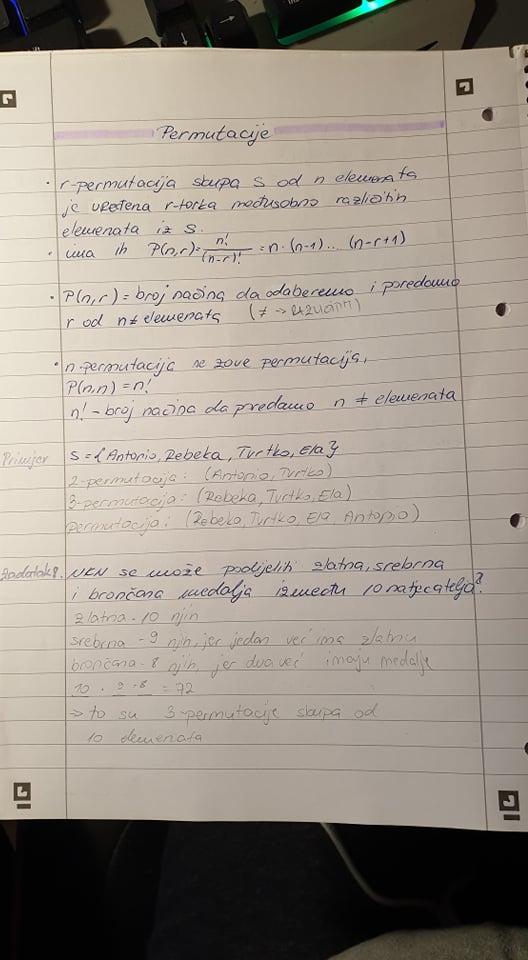 Permutacije
· r-permutacija skupa S od n elemenata
je uređena r-torka međusobno različitih
elemenata iz S.
· ima ih P(n,r)=n!/(n-r)! = n·(n-1)... (n-r+1)
· P(n,r) = broj načina da odaberemo i poredamo
r od n ≠ elemenata (≠ →
· n-permutacija se zove permutacija,
P(n,n) = n!
n! - broj načina da predamo n ≠ elemenata
Primjer S = {Antonio, Rebeka, Tvrtko, Ela}
2-permutacija: (Antonio, Tvrtko)
3-permutacija: (Rebeka, Tvrtko, Ela)
permutacija: (Rebeka, Tvrtko, Ela, Antonio)
Zadatak 8. NKN se može podijeliti zlatna, srebrna
i brončana medalja između 10 natjecatelja?
zlatna - 10 njih
srebrna - 9 njih, jer jedan već ima zlatnu
brončana - 8 njih, jer dva već imaju medalje
10 · 9 · 8 = 72
⇒ to su 3-permutacije skupa od
10 elemenata